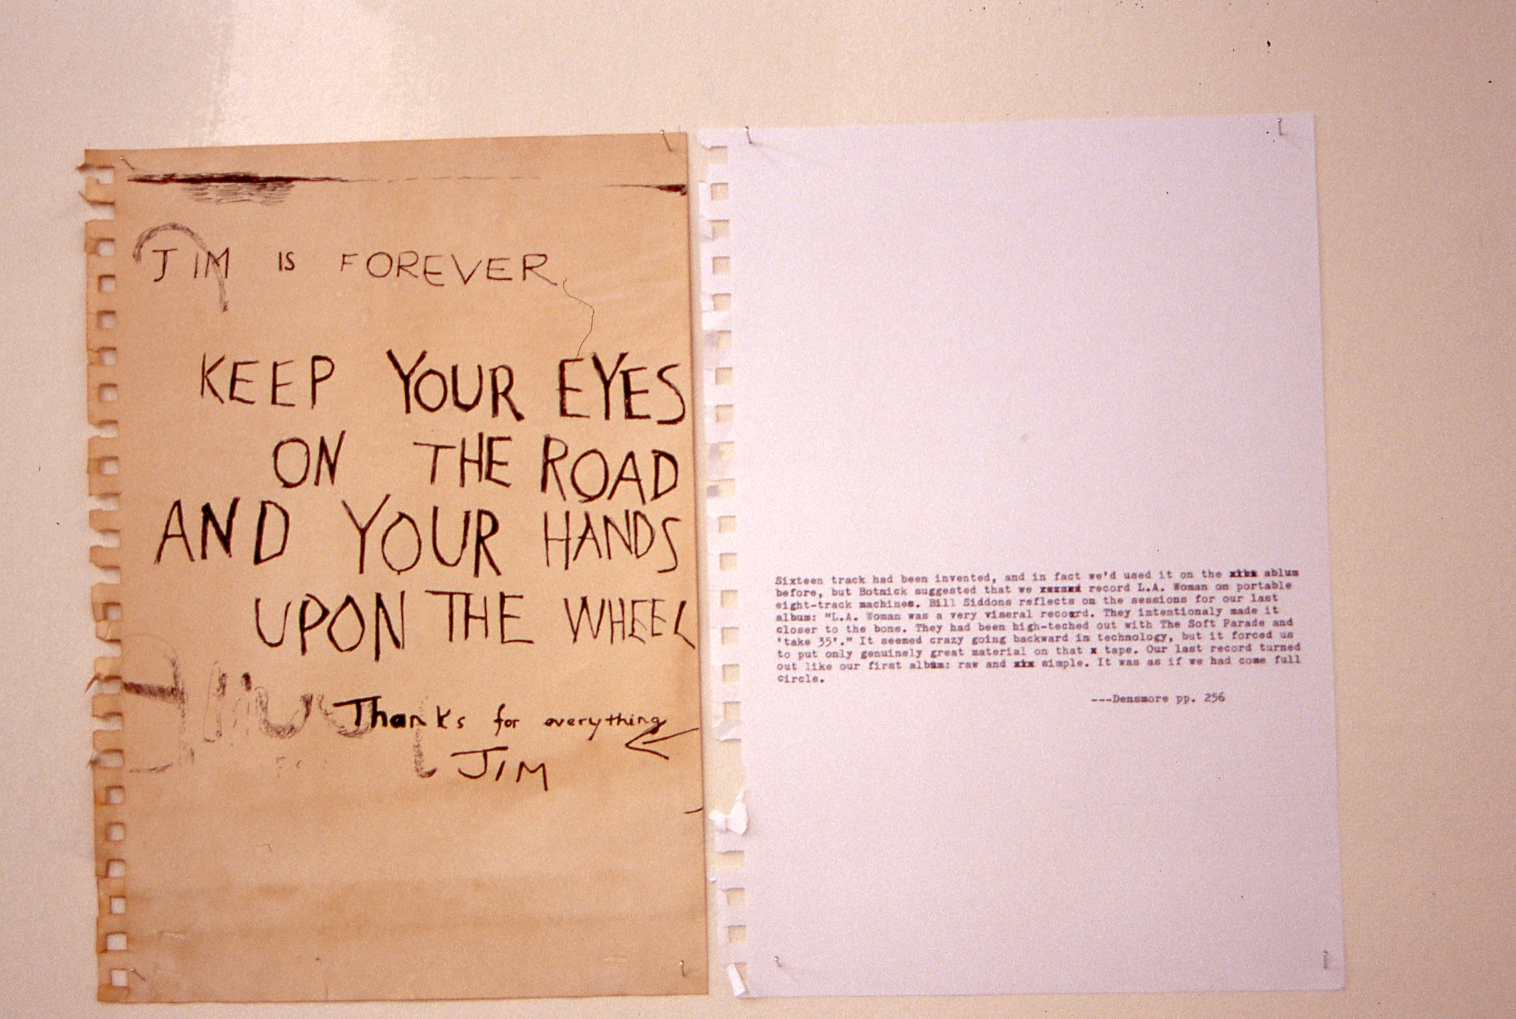 JIM IS FOREVER
KEEP YOUR EYES
ON THE ROAD
AND YOUR HANDS
UPON THE WHEEL
Thanks for everything
JIM
Sixteen track had been invented, and in fact we'd used it on the ablum
before, but Botnick suggested that we record L.A. Woman on portable
eight-track machines. Bill Siddons reflects on the sessions for our last
album: "L.A. Woman was a very viseral record. They intentionaly made it
closer to the bone. They had been high-teched out with The Soft Parade and
'take 35'." It seemed crazy going backward in technology, but it forced us
to put only genuinely great material on that tape. Our last record turned
out like our first album: raw and simple. It was as if we had come full
circle.
---Densmore pp. 256